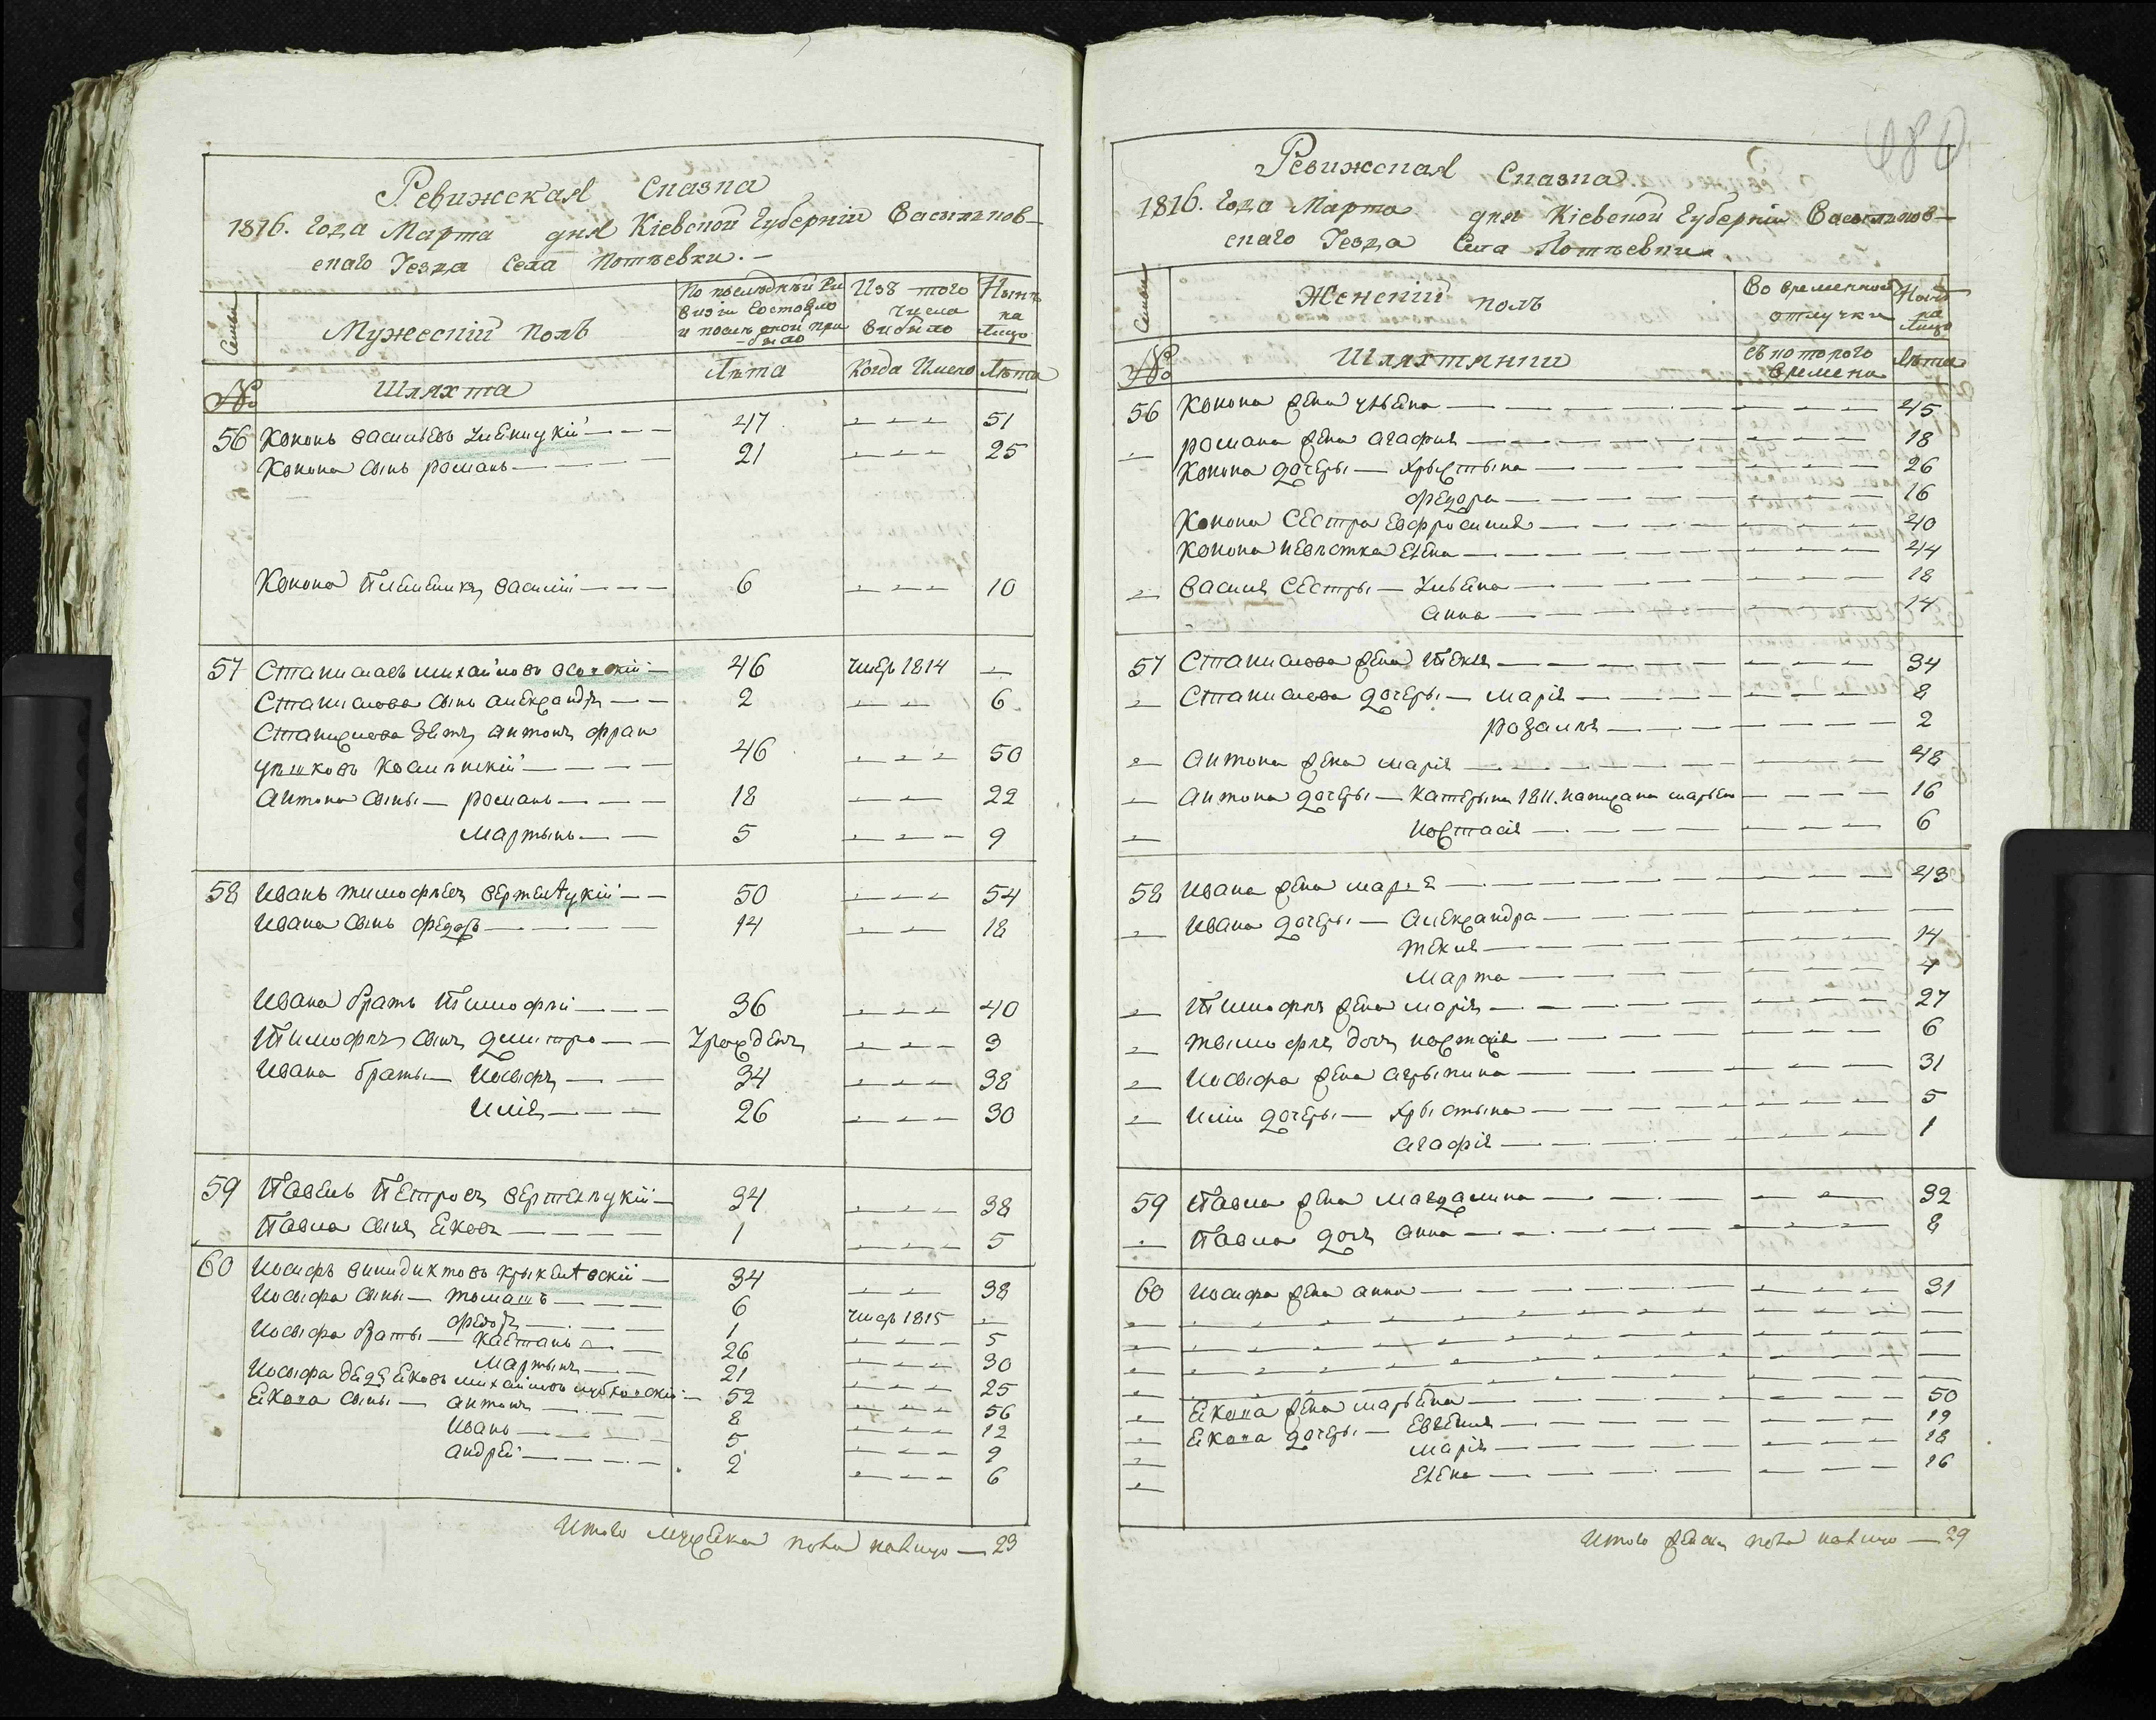 Ревижская Сказка
1816. Года Марта дня Кіевской Губерніи Васильков-
скаго Уезда Села Потѣевки. —
Семьи
Мужескій полъ
По последней Ре
визіи Состояло
и послѣ оной при
было
Изъ того
числа
выбыло
Нынѣ
на
Лицо
№
Шляхта
Лѣта
Когда Имено
Лѣта
56 Кононъ васильевъ 47 51
Конона сынъ романъ 21 25
Конона Племеникъ василій 6 10
57 Станиславъ михайловъ 46 умер 1814
Станислава сынъ александръ 2 6
Станислава зять антонъ фран
цышковъ 46 50
антона сыны — романъ 18 22
мартынъ 5 9
58 Иванъ тимофѣевъ 50 54
Ивана сынъ федоръ 14 18
Ивана братъ Тимофѣй 36 40
Тимофѣя сынъ дмитро Урожденъ 3
Ивана браты — Иосыфъ 34 38
Илія 26 30
59 Павелъ Петровъ 34 38
Павла сынъ Яковъ 1 5
60 Иосифъ винидиктовъ 34 38
Иосыфа сыны — томашъ 6 умер 1815
федоръ 1 5
Иосыфа браты — Каетанъ 26 30
мартынъ 21 25
Иосыфа дядя Яковъ михайловъ 52 56
Якова сыны — антонъ 8 12
Иванъ 5 9
андрей 2 6
Итого мужеска пола налицо — 23
680
Ревижская Сказка
1816. Года Марта дня Кіевской Губерніи Васильков-
скаго Уезда Села Потѣевки
Семьи
Женскій полъ
Во временной
отлучки
Нынѣ
на
Лицо
№
Шляхтянки
съ которого
времени
Лѣта
56 Конона жена улияна 45
романа жена агафия 18
Конона дочеры — Хрыстына 26
федора 16
Конона сестра евфросиния 40
Конона невѣстка елена 44
василя сестры — Улияна 18
анна 14
57 Станислава жена Текля 34
Станислава дочеры — марія 8
розалія 2
антона жена марія 48
антона дочеры — катерына 1811. написана марьею 16
настасія 6
58 Ивана жена марія 43
Ивана дочеры — александра
текля 14
марта 4
Тимофѣя жена марія 27
тымофѣя дочь настасія 6
Иосыфа жена агрыпина 31
Иліи дочеры — Хрыстына 5
агафія 1
59 Павла жена магдалина 32
Павла дочь анна 8
60 Иосифа жена анна 31
Якова жена марьяна 50
Якова дочеры — Евгения 19
марія 18
елена 16
Итого женска пола налицо — 29